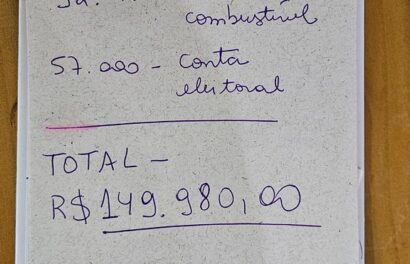 combustível
57.000 - Conta
eleitoral
TOTAL -
R$ 149.980,00